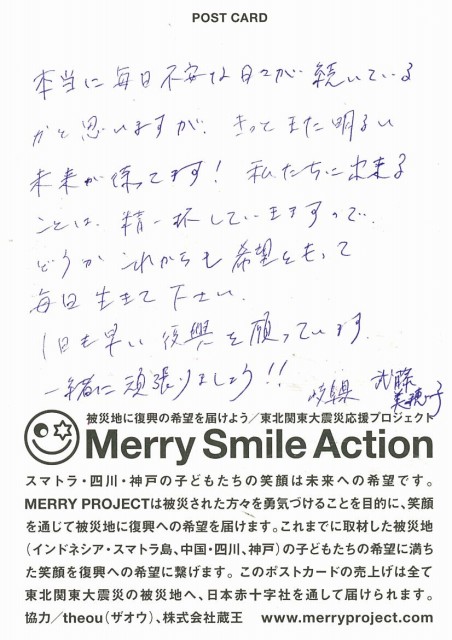 POST CARD
本当に毎日不安な日々が続いている
かと思いますが、きっとまた明るい
未来が待ってます！私たちに出来る
ことは、精一杯していきますので、
どうかこれからも希望をもって
毎日生きて下さい。
1日も早い復興を願っています。
一緒に頑張りましょう!!
被災地に復興の希望を届けよう／東北関東大震災応援プロジェクト
Merry Smile Action
スマトラ・四川・神戸の子どもたちの笑顔は未来への希望です。
MERRY PROJECTは被災された方々を勇気づけることを目的に、笑顔
を通じて被災地に復興への希望を届けます。これまでに取材した被災地
（インドネシア・スマトラ島、中国・四川、神戸）の子どもたちの希望に満ち
た笑顔を復興への希望に繋げます。このポストカードの売上げは全て
東北関東大震災の被災地へ、日本赤十字社を通して届けられます。
協力／theou（ザオウ）、株式会社蔵王　www.merryproject.com